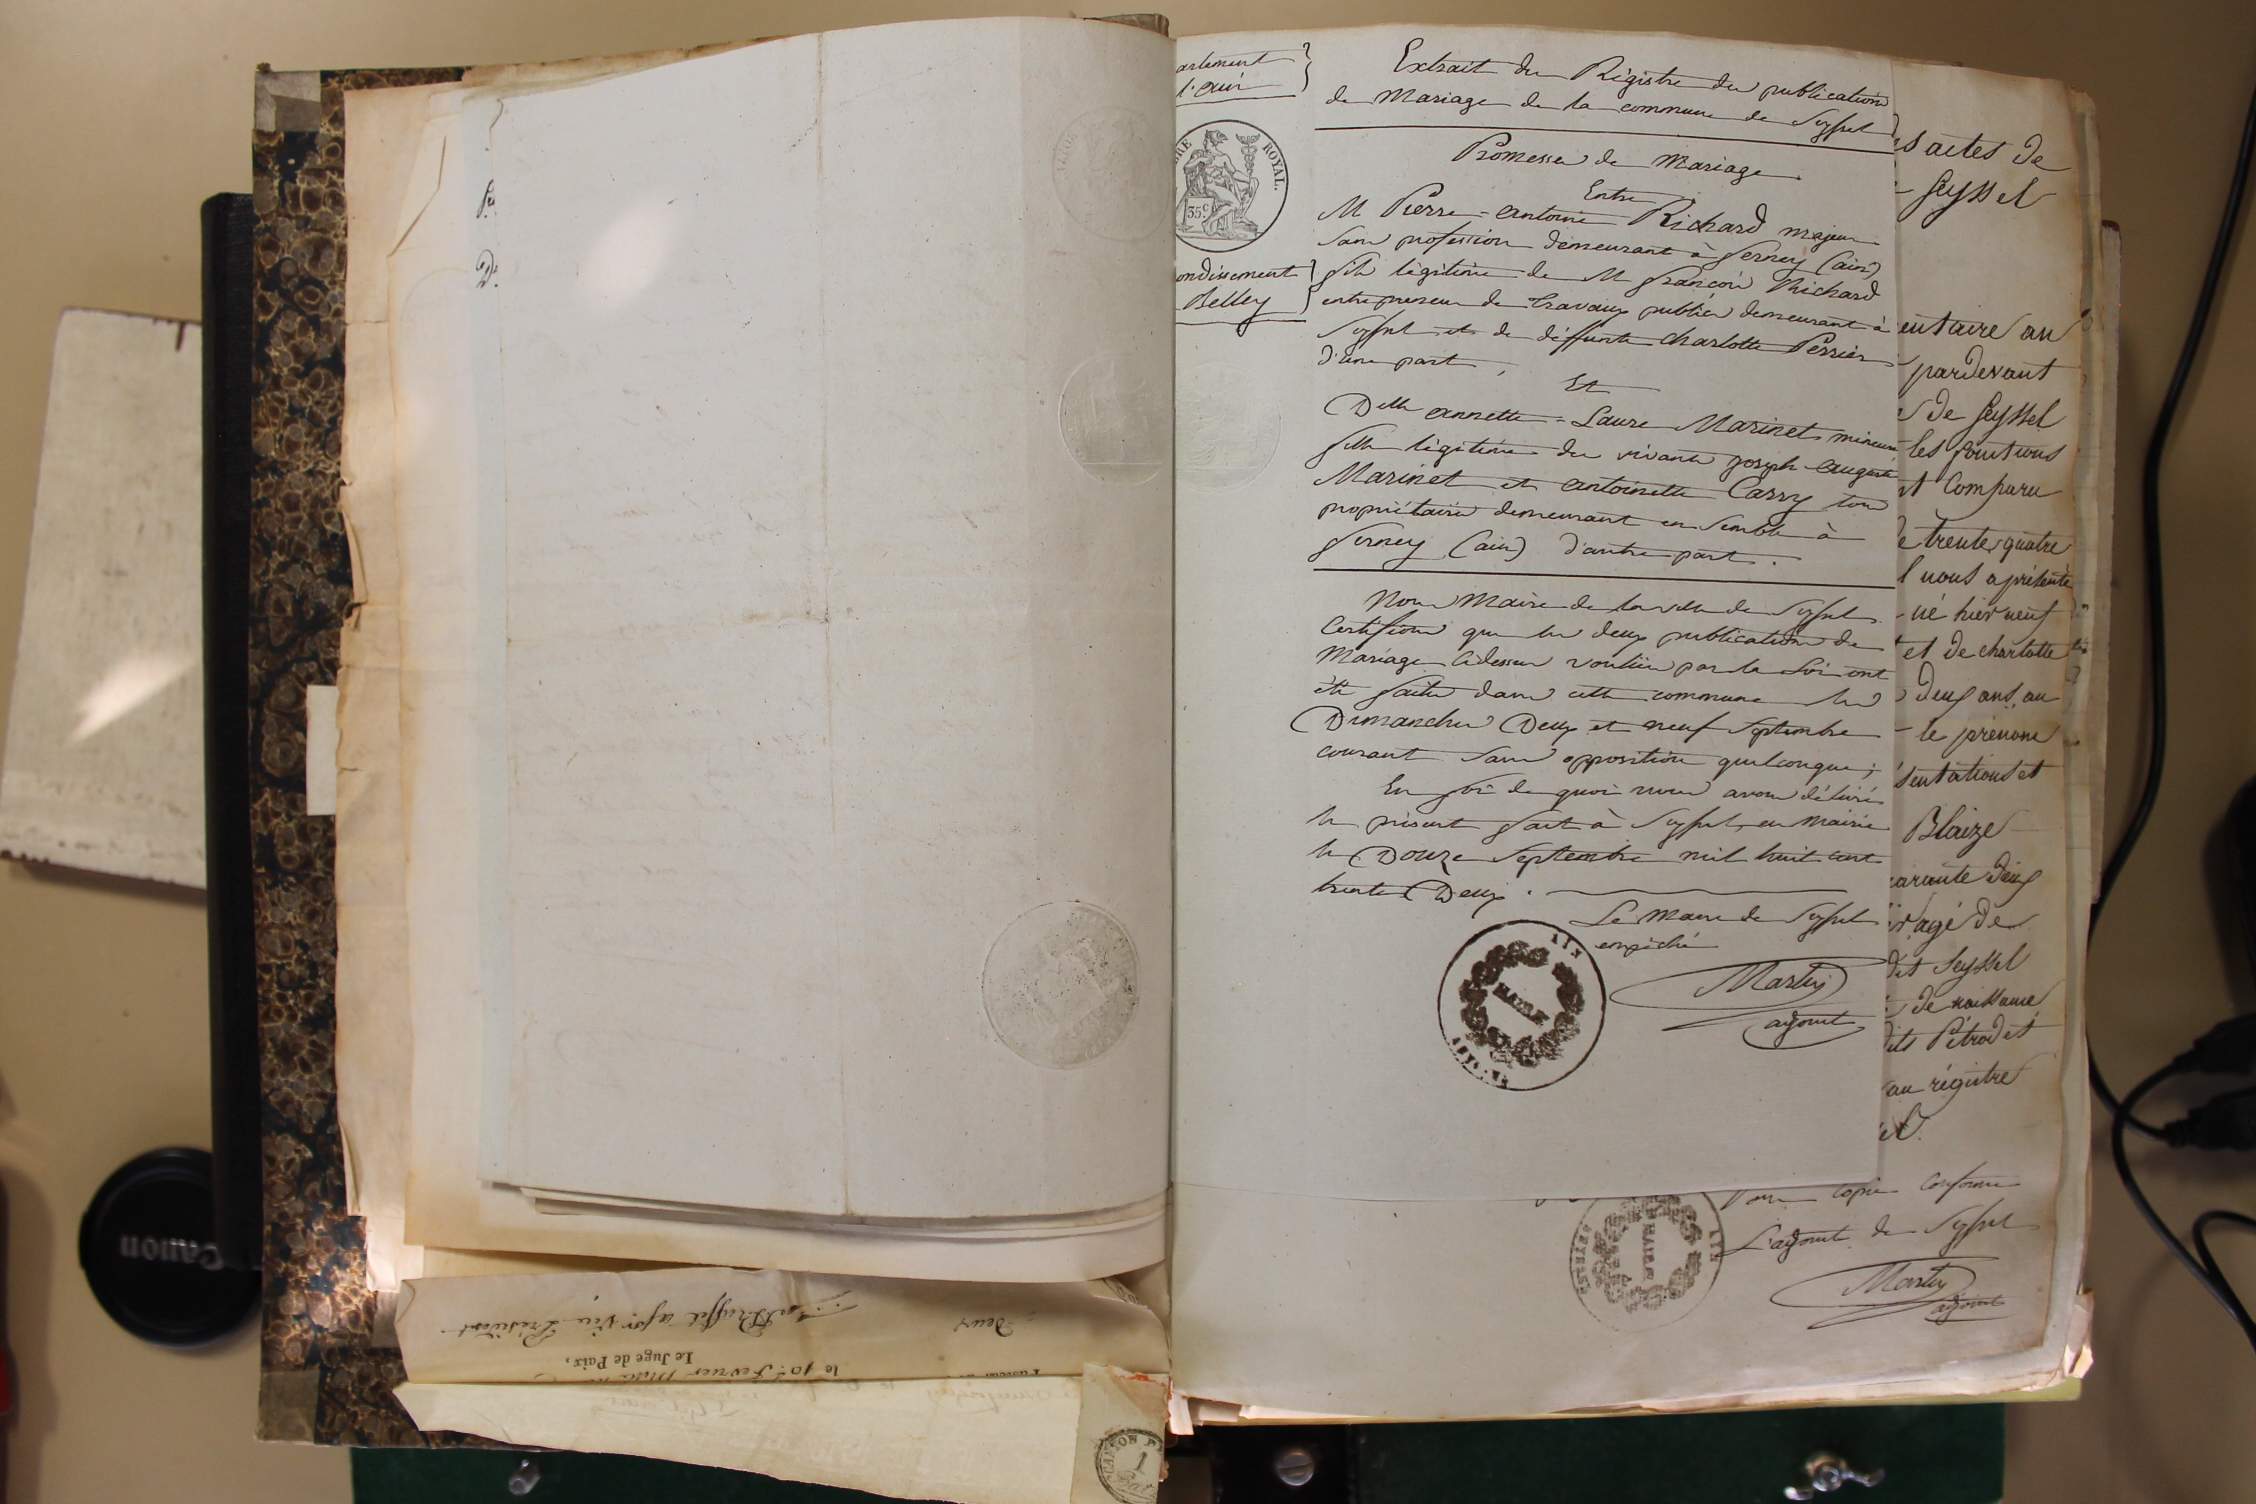 Extrait du Régistre des publications
de Mariage de la commune de Seyssel
artement
l'ain
ROYAL.
35 c
ondissement
Belley
Promesse de Mariage
Entre
M Pierre-antoine Richard majeur
sans profession demeurant à ferney (ain)
fils légitime de M françois Richard
entrepreneur de travaux publics demeurant à
Seyssel et de deffunte charlotte Perrier
d'une part,
Et
Delle annette-Laure Marinet mineure
fille légitime des vivants joseph-auguste
Marinet et antoinette Carry tous
propriétaires demeurant ensemble à
ferney (ain) d'autre part.
Nous Maire de la ville de Seyssel
Certifions que les deux publications de
Mariage cidessus voulues par la Loi ont
été faites dans cette commune les
Dimanches Deux et neuf septembre
courant sans opposition quelconque ;
En foi de quoi nous avons délivré
le présent fait à Seyssel, en Mairie
le Douze Septembre mil huit cent
trente Deux.
Le Maire de Seyssel
empêché
Martin
adjoint
MAIRIE
AIN
s actes de
Seyssel
entaire au
pardevant
de Seyssel
les fonctions
t Comparu
de trente quatre
l nous a présenté
né hier neuf
et de charlotte
deux ans, au
le prénom
sentations et
Blaize
arante deux
r agé de
dit Seyssel
de naissance
au régistre
Pour copie Conforme
L'adjoint de Seyssel
Martin
adjoint
MAIRIE
AIN
SEYSSEL
deux
Le Juge de Paix,
le 10 fevrier
1
Canon